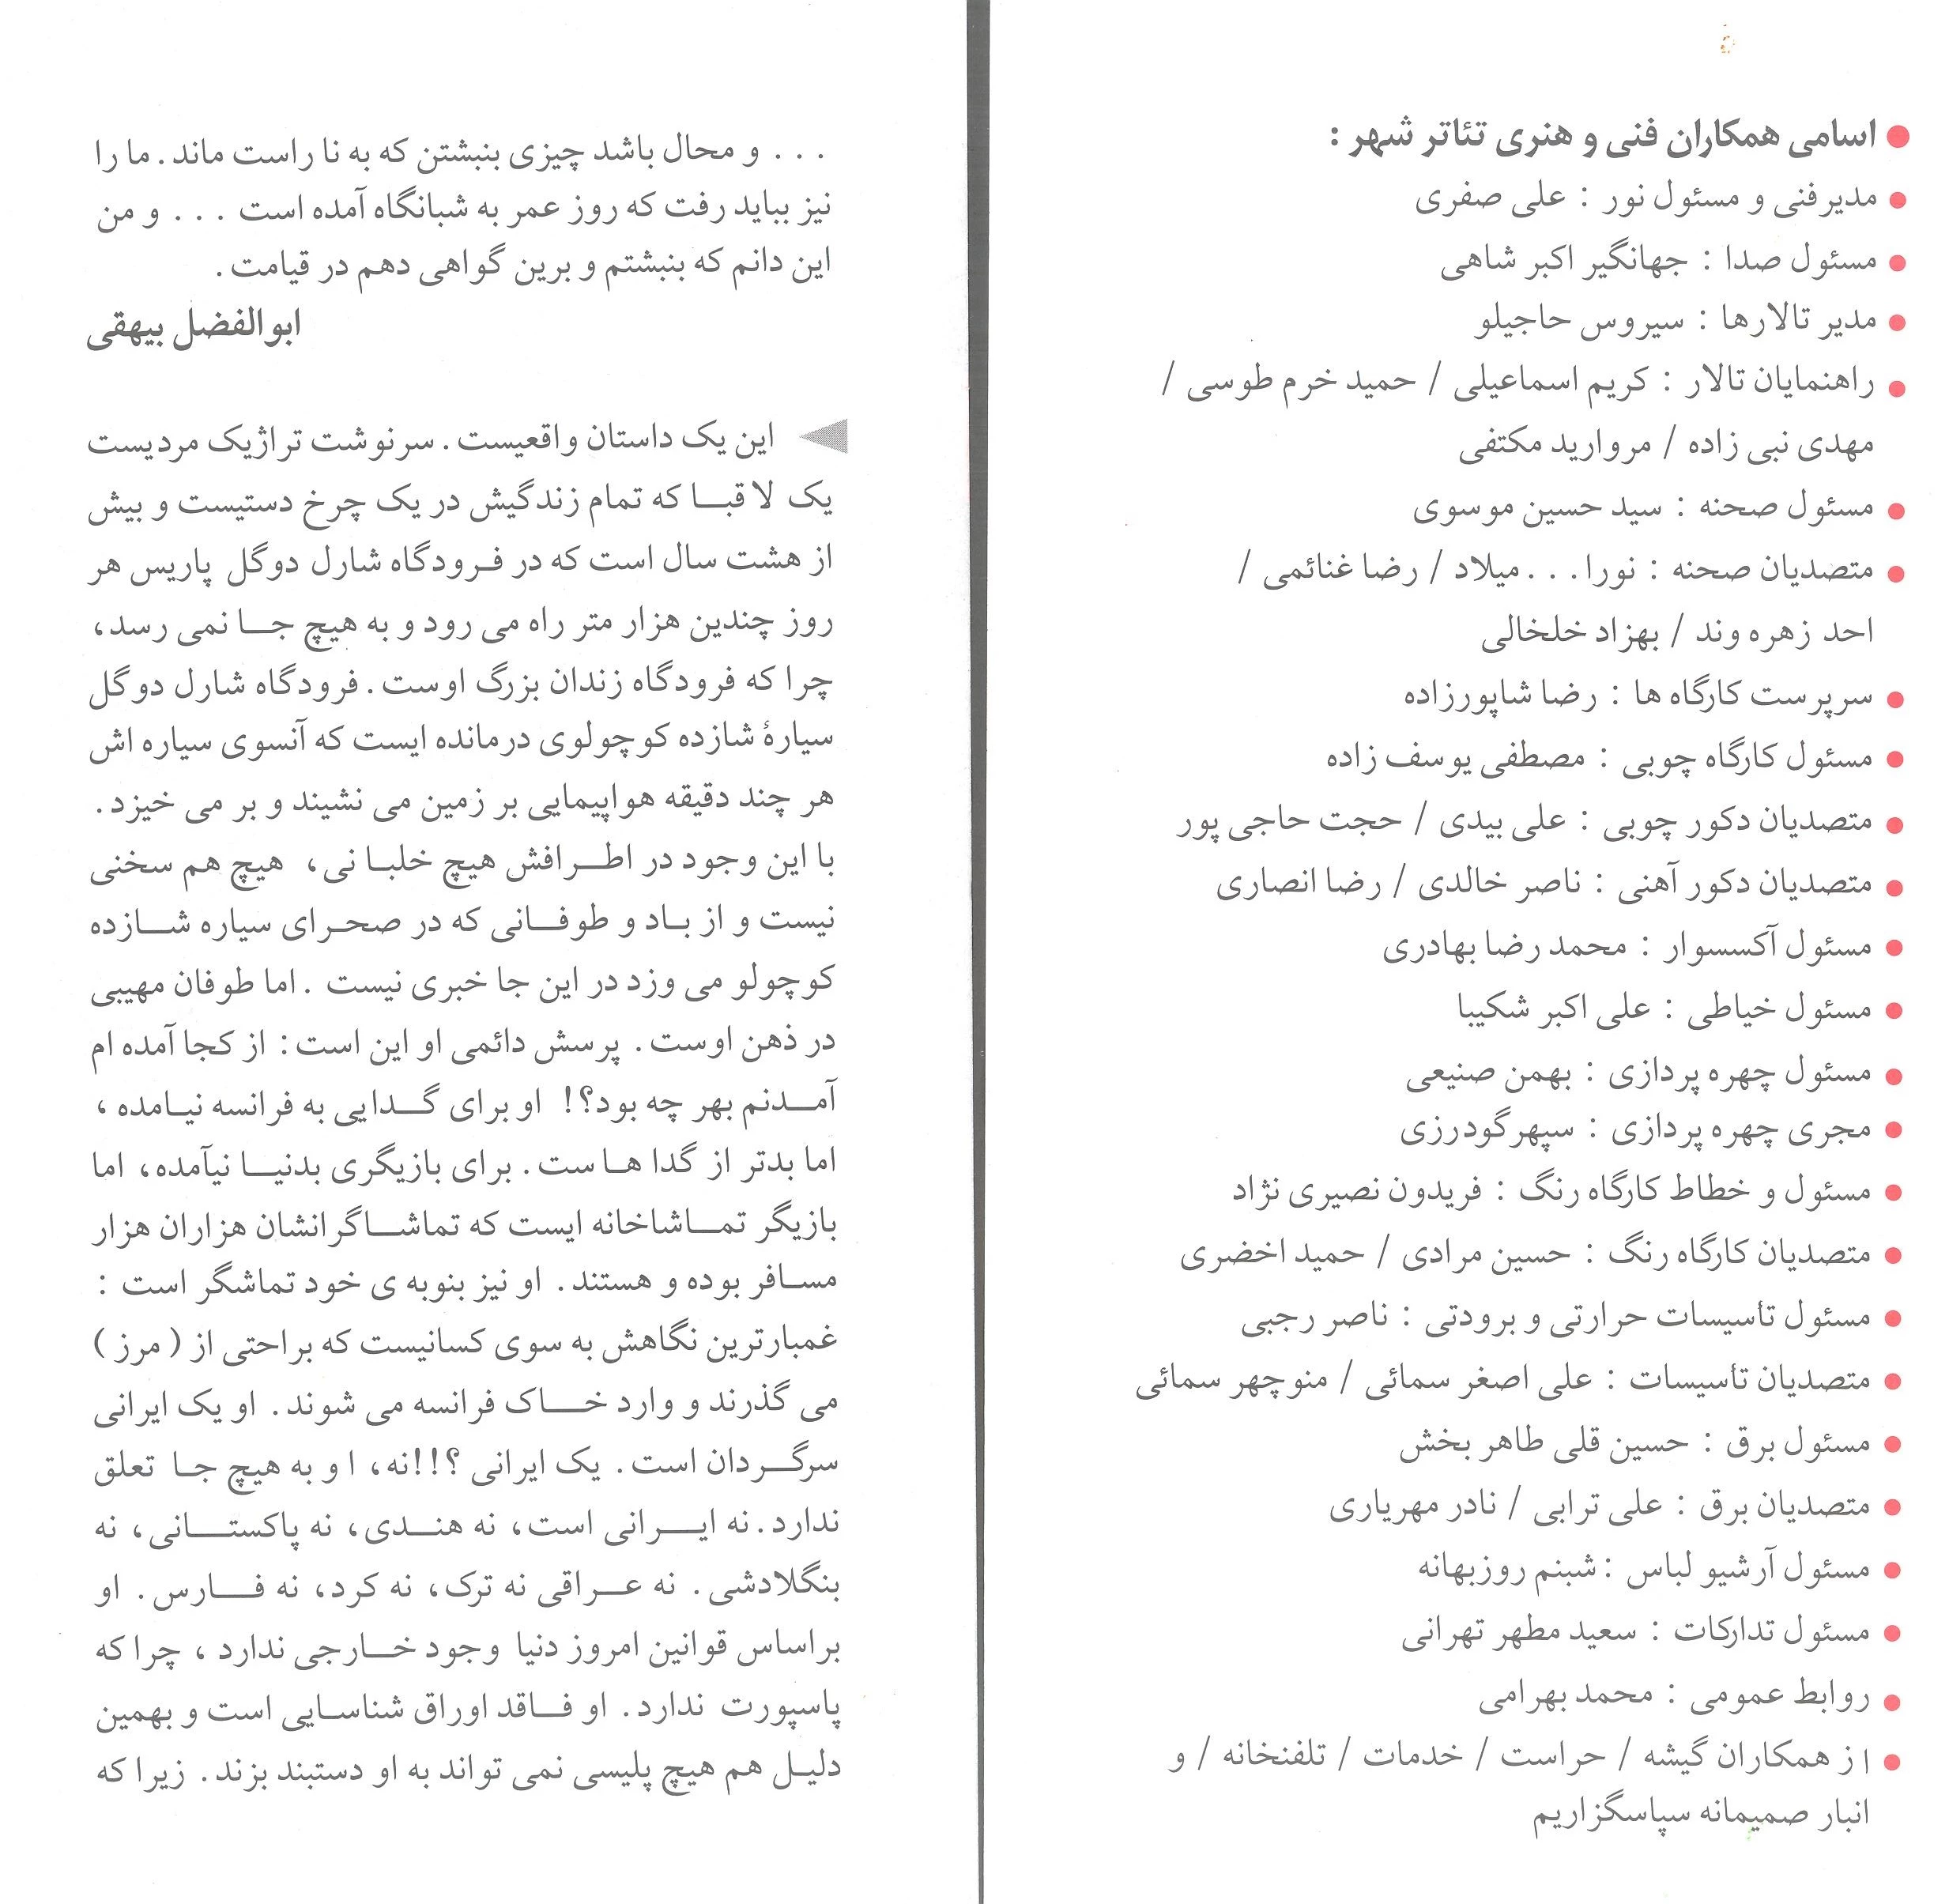 اسامی همکاران فنی و هنری تئاتر شهر :
مدیرفنی و مسئول نور : علی صفری
مسئول صدا : جهانگیر اکبر شاهی
مدیر تالارها : سیروس حاجیلو
راهنمایان تالار : کریم اسماعیلی / حمید خرم طوسی /
مهدی نبی زاده / مروارید مکتفی
مسئول صحنه : سید حسین موسوی
متصدیان صحنه : نورا . . . میلاد / رضا غنائمی /
احد زهره وند / بهزاد خلخالی
سرپرست کارگاه ها : رضا شاپورزاده
مسئول کارگاه چوبی : مصطفی یوسف زاده
متصدیان دکور چوبی : علی بیدی / حجت حاجی پور
متصدیان دکور آهنی : ناصر خالدی / رضا انصاری
مسئول آکسسوار : محمد رضا بهادری
مسئول خیاطی : علی اکبر شکیبا
مسئول چهره پردازی : بهمن صنیعی
مجری چهره پردازی : سپهرگودرزی
مسئول و خطاط کارگاه رنگ : فریدون نصیری نژاد
متصدیان کارگاه رنگ : حسین مرادی / حمید اخضری
مسئول تأسیسات حرارتی و برودتی : ناصر رجبی
متصدیان تأسیسات : علی اصغر سمائی / منوچهر سمائی
مسئول برق : حسین قلی طاهر بخش
متصدیان برق : علی ترابی / نادر مهریاری
مسئول آرشیو لباس : شبنم روزبهانه
مسئول تدارکات : سعید مطهر تهرانی
روابط عمومی : محمد بهرامی
از همکاران گیشه / حراست / خدمات / تلفنخانه / و
انبار صمیمانه سپاسگزاریم
. . . و محال باشد چیزی بنبشتن که به نا راست ماند. ما را
نیز بباید رفت که روز عمر به شبانگاه آمده است . . . و من
این دانم که بنبشتم و برین گواهی دهم در قیامت.
ابوالفضل بیهقی
این یک داستان واقعیست. سرنوشت تراژیک مردیست
یک لاقبا که تمام زندگیش در یک چرخ دستیست و بیش
از هشت سال است که در فرودگاه شارل دوگل پاریس هر
روز چندین هزار متر راه می رود و به هیچ جا نمی رسد،
چرا که فرودگاه زندان بزرگ اوست. فرودگاه شارل دوگل
سیارهٔ شازده کوچولوی درمانده ایست که آنسوی سیاره اش
هر چند دقیقه هواپیمایی بر زمین می نشیند و بر می خیزد.
با این وجود در اطرافش هیچ خلبانی، هیچ هم سخنی
نیست و از باد و طوفانی که در صحرای سیاره شازده
کوچولو می وزد در این جا خبری نیست . اما طوفان مهیبی
در ذهن اوست. پرسش دائمی او این است: از کجا آمده ام
آمدنم بهر چه بود؟! او برای گدایی به فرانسه نیامده ،
اما بدتر از گدا هاست. برای بازیگری بدنیا نیآمده، اما
بازیگر تماشاخانه ایست که تماشاگرانشان هزاران هزار
مسافر بوده و هستند. او نیز بنوبه ی خود تماشگر است :
غمبارترین نگاهش به سوی کسانیست که براحتی از ( مرز )
می گذرند و وارد خاک فرانسه می شوند. او یک ایرانی
سرگردان است. یک ایرانی ؟!!نه، او به هیچ جا تعلق
ندارد. نه ایرانی است، نه هندی، نه پاکستانی، نه
بنگلادشی. نه عراقی نه ترک، نه کرد، نه فارس. او
براساس قوانین امروز دنیا وجود خارجی ندارد ، چرا که
پاسپورت ندارد. او فاقد اوراق شناسایی است و بهمین
دلیل هم هیچ پلیسی نمی تواند به او دستبند بزند. زیرا که